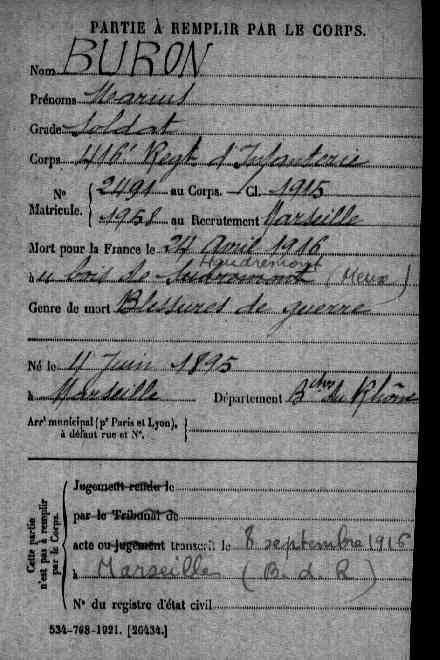 PARTIE À REMPLIR PAR LE CORPS.
Nom BURON
Prénoms Marius
Grade Soldat
Corps 416e Regt d'Infanterie
N° Matricule. { 2491 au Corps. — Cl. 1915
1958 au Recrutement Marseille
Mort pour la France le 24 Avril 1916
Haudremont
à u bois de (Meuse)
Genre de mort Blessures de guerre
Né le 4 Juin 1895
à Marseille Département Bches du Rhône
Arrt municipal (pr Paris et Lyon), à défaut rue et N°. }
Cette partie n'est pas à remplir par le Corps.
Jugement rendu le
par le Tribunal de
acte ou jugement transcrit le 8 septembre 1916
à Marseille (B. d. R)
N° du registre d'état civil
534-708-1921. [26434.]